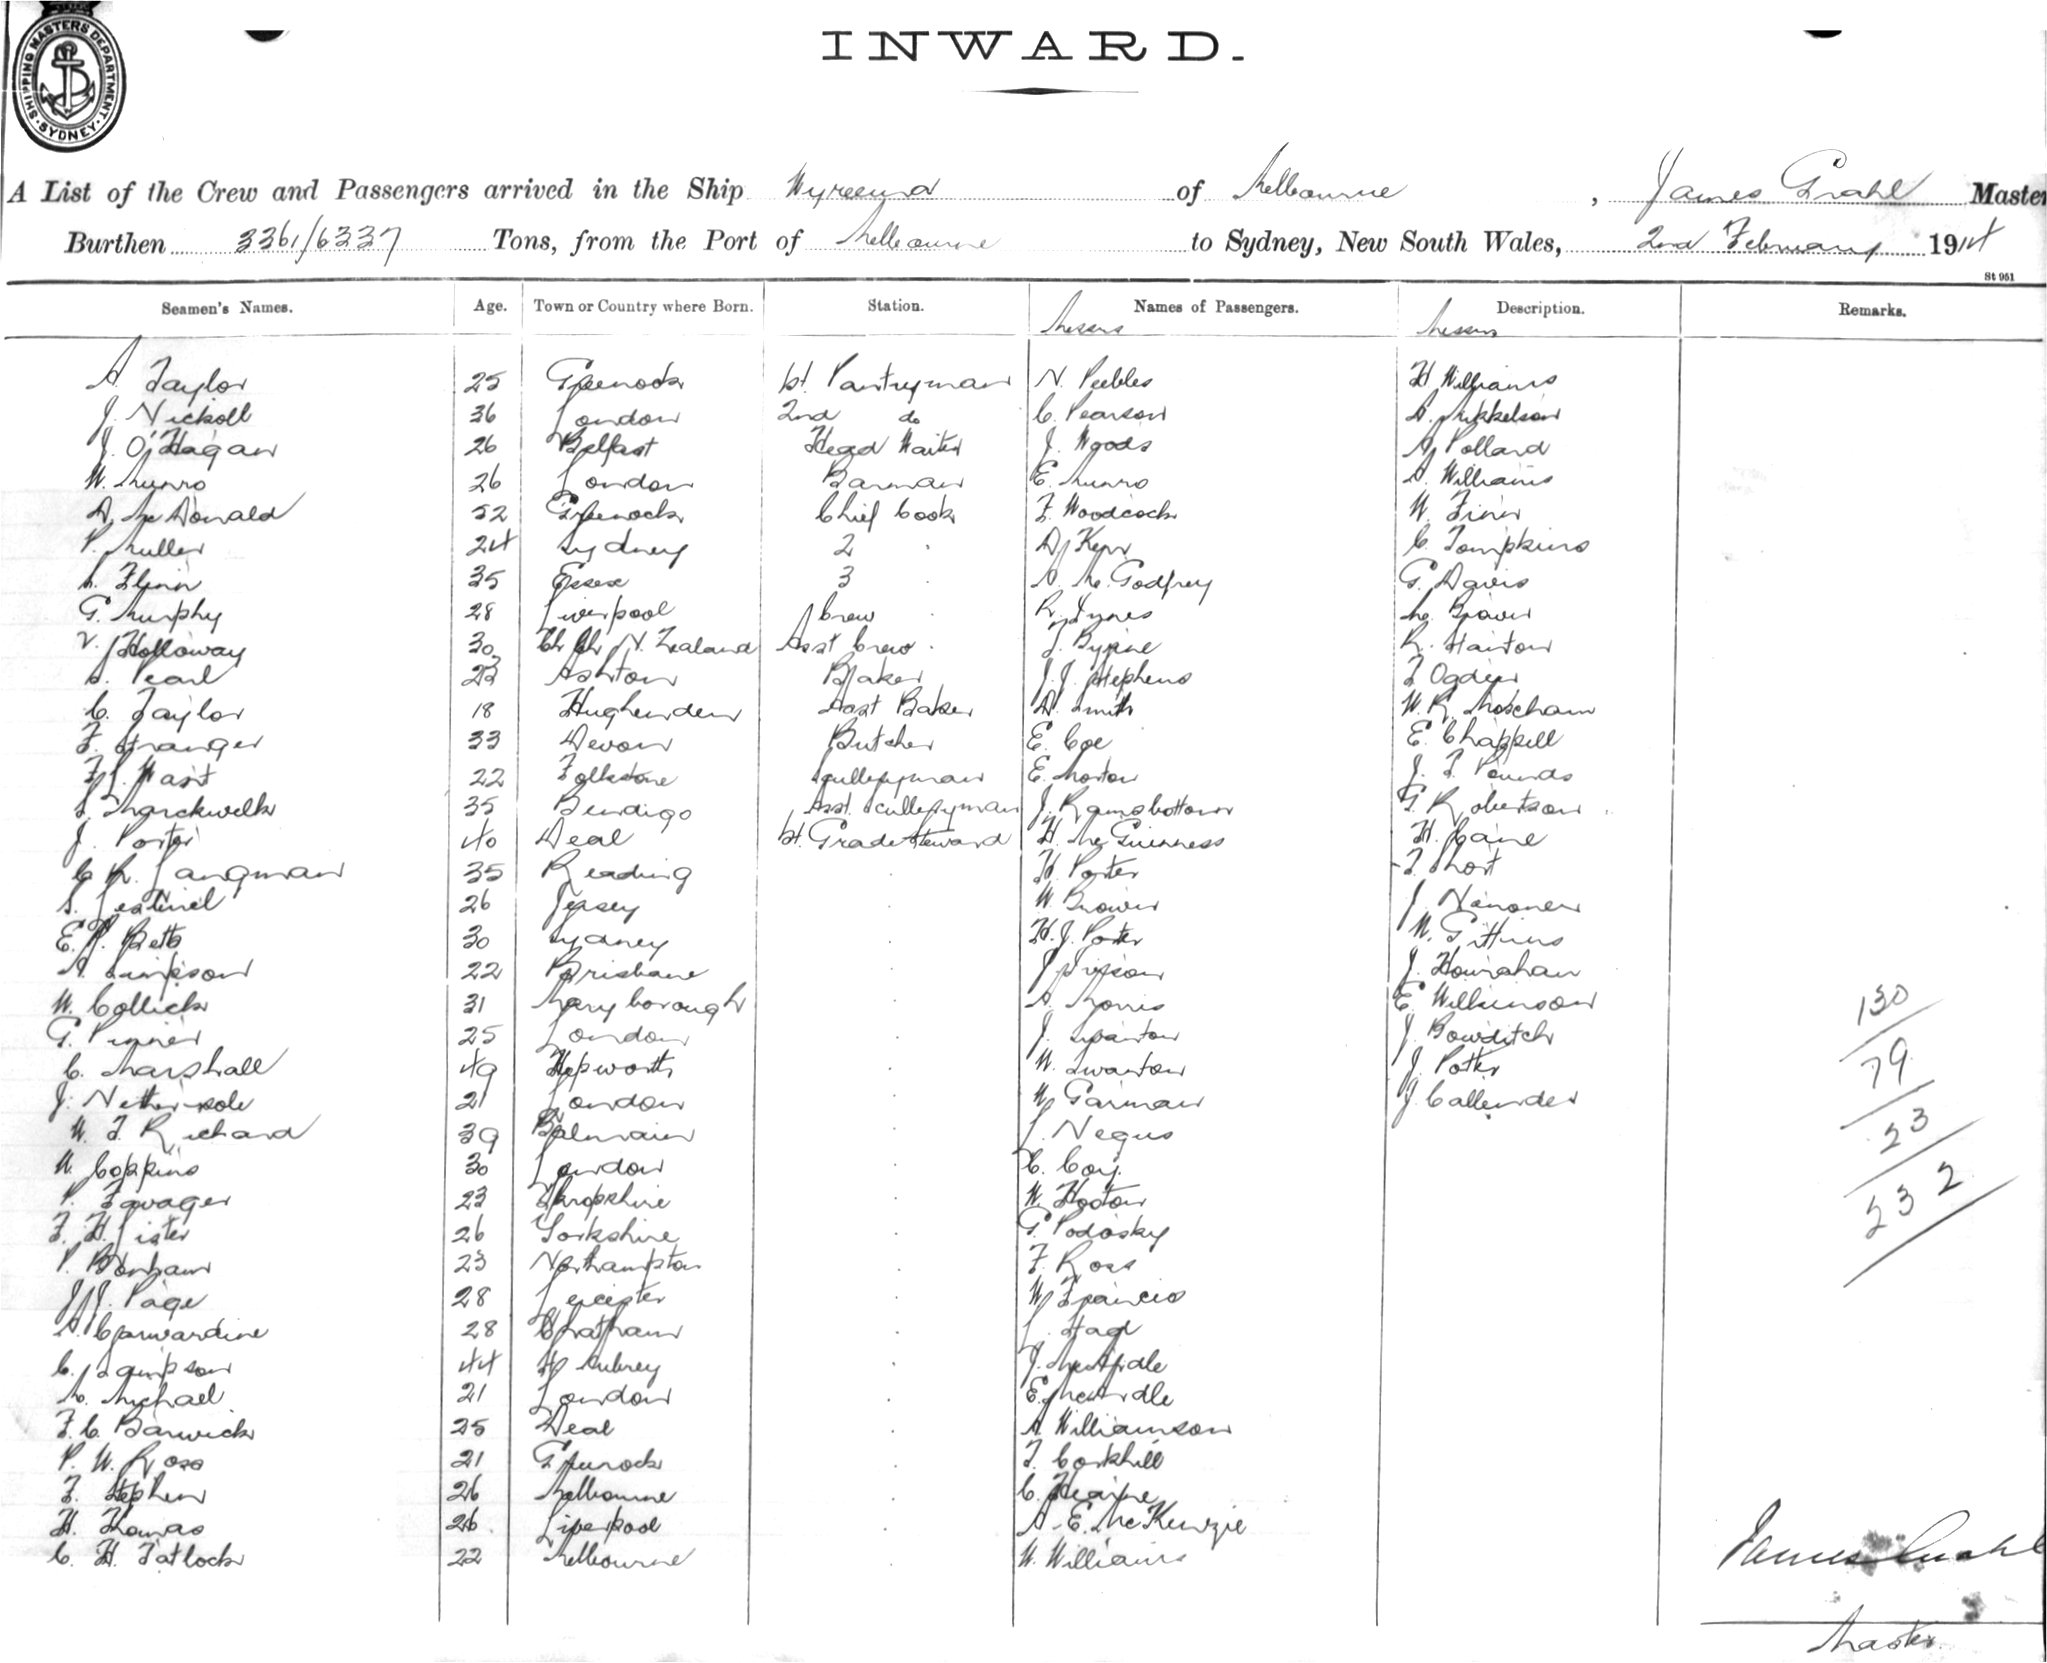 SHIPPING MASTERS DEPARTMENT · SYDNEY ·
INWARD.
A List of the Crew and Passengers arrived in the Ship Wyreema of Melbourne, James Grahl Master
Burthen 3361/6337 Tons, from the Port of Melbourne to Sydney, New South Wales, 2nd February 1914
St 951
Seamen's Names. Age. Town or Country where Born. Station. Names of Passengers. Description. Remarks.
Messrs Messrs
A. Taylor 25 Greenock 1st Pantryman N. Peebles H Williams
J. Nickoll 36 London 2nd do C. Pearson A. Mikkelson
J. O'Hagan 26 Belfast Head Waiter J. Woods A Pollard
W. Munro 26 London Barman E. Munro A. Williams
A. McDonald 52 Greenock Chief Cook F. Woodcock W.
P. Muller 24 Sydney 2 " A Kerr C. Tompkins
Flinn 35 Essex 3 " A. Mc. Godfrey G. Davis
G. Murphy 28 Liverpool Crew " R. Tynes
V. Holloway 30 Ch Ch N. Zealand Asst Crew " T. Byrne R. Stanton
Pearl 23 Ashton Baker J. J. Stephens T Ogden
C. Taylor 18 Hughenden Asst Baker A. Smith W. R. Moscham
F. Stranger 33 Devon Butcher E. Coe E. Chappell
22 Folkstone Sculleryman E. Morton J. T. Pounds
35 Bendigo Asst. Sculleryman J Ramsbottom G. Robertson
J. Porter 40 Deal 1st Grade Steward H. McGuinness H. Cane
C R. Langman 35 Reading " H. Porter T. Short
26 Jersey " W Brown J.
E. P. Betts 30 Sydney " H. J. Porter W. Gittins
A. Simpson 22 Brisbane " J Simpson J. Hourahan
W. Collick 31 Maryborough " A. Morris E Wilkinson
G. Pinner 25 London " J. Swanton J. Bowditch
C. Marshall 49 Hepworth " W. Swanton J. Potter
J. Nethersole 21 London " W Garman J Callender
W. T. Richard 39 Balmain " L. Negus
W. Coppins 30 London " C. Coy.
P. 23 Shropshire " W. Hooton
F. H. Lister 26 Yorkshire " G. Podosky
P. Bonham 23 Northampton " F. Ross
J. J. Page 28 Leicester " W Francis
A. Carwardine 28 Chatham "
C. Sampson 44 " J. McArdle
Michael 21 London " E. McArdle
F. C. Barwick 25 Deal " A Williamson
P. W. Ross 21 Greenock " T. Corkhill
F. Stephen 26 Melbourne " C. Hearne
H. Thomas 26 Liverpool " A. E. McKenzie
C. H. Tatlock 22 Melbourne " W. Williams
130
79
23
232
James Grahl
Master